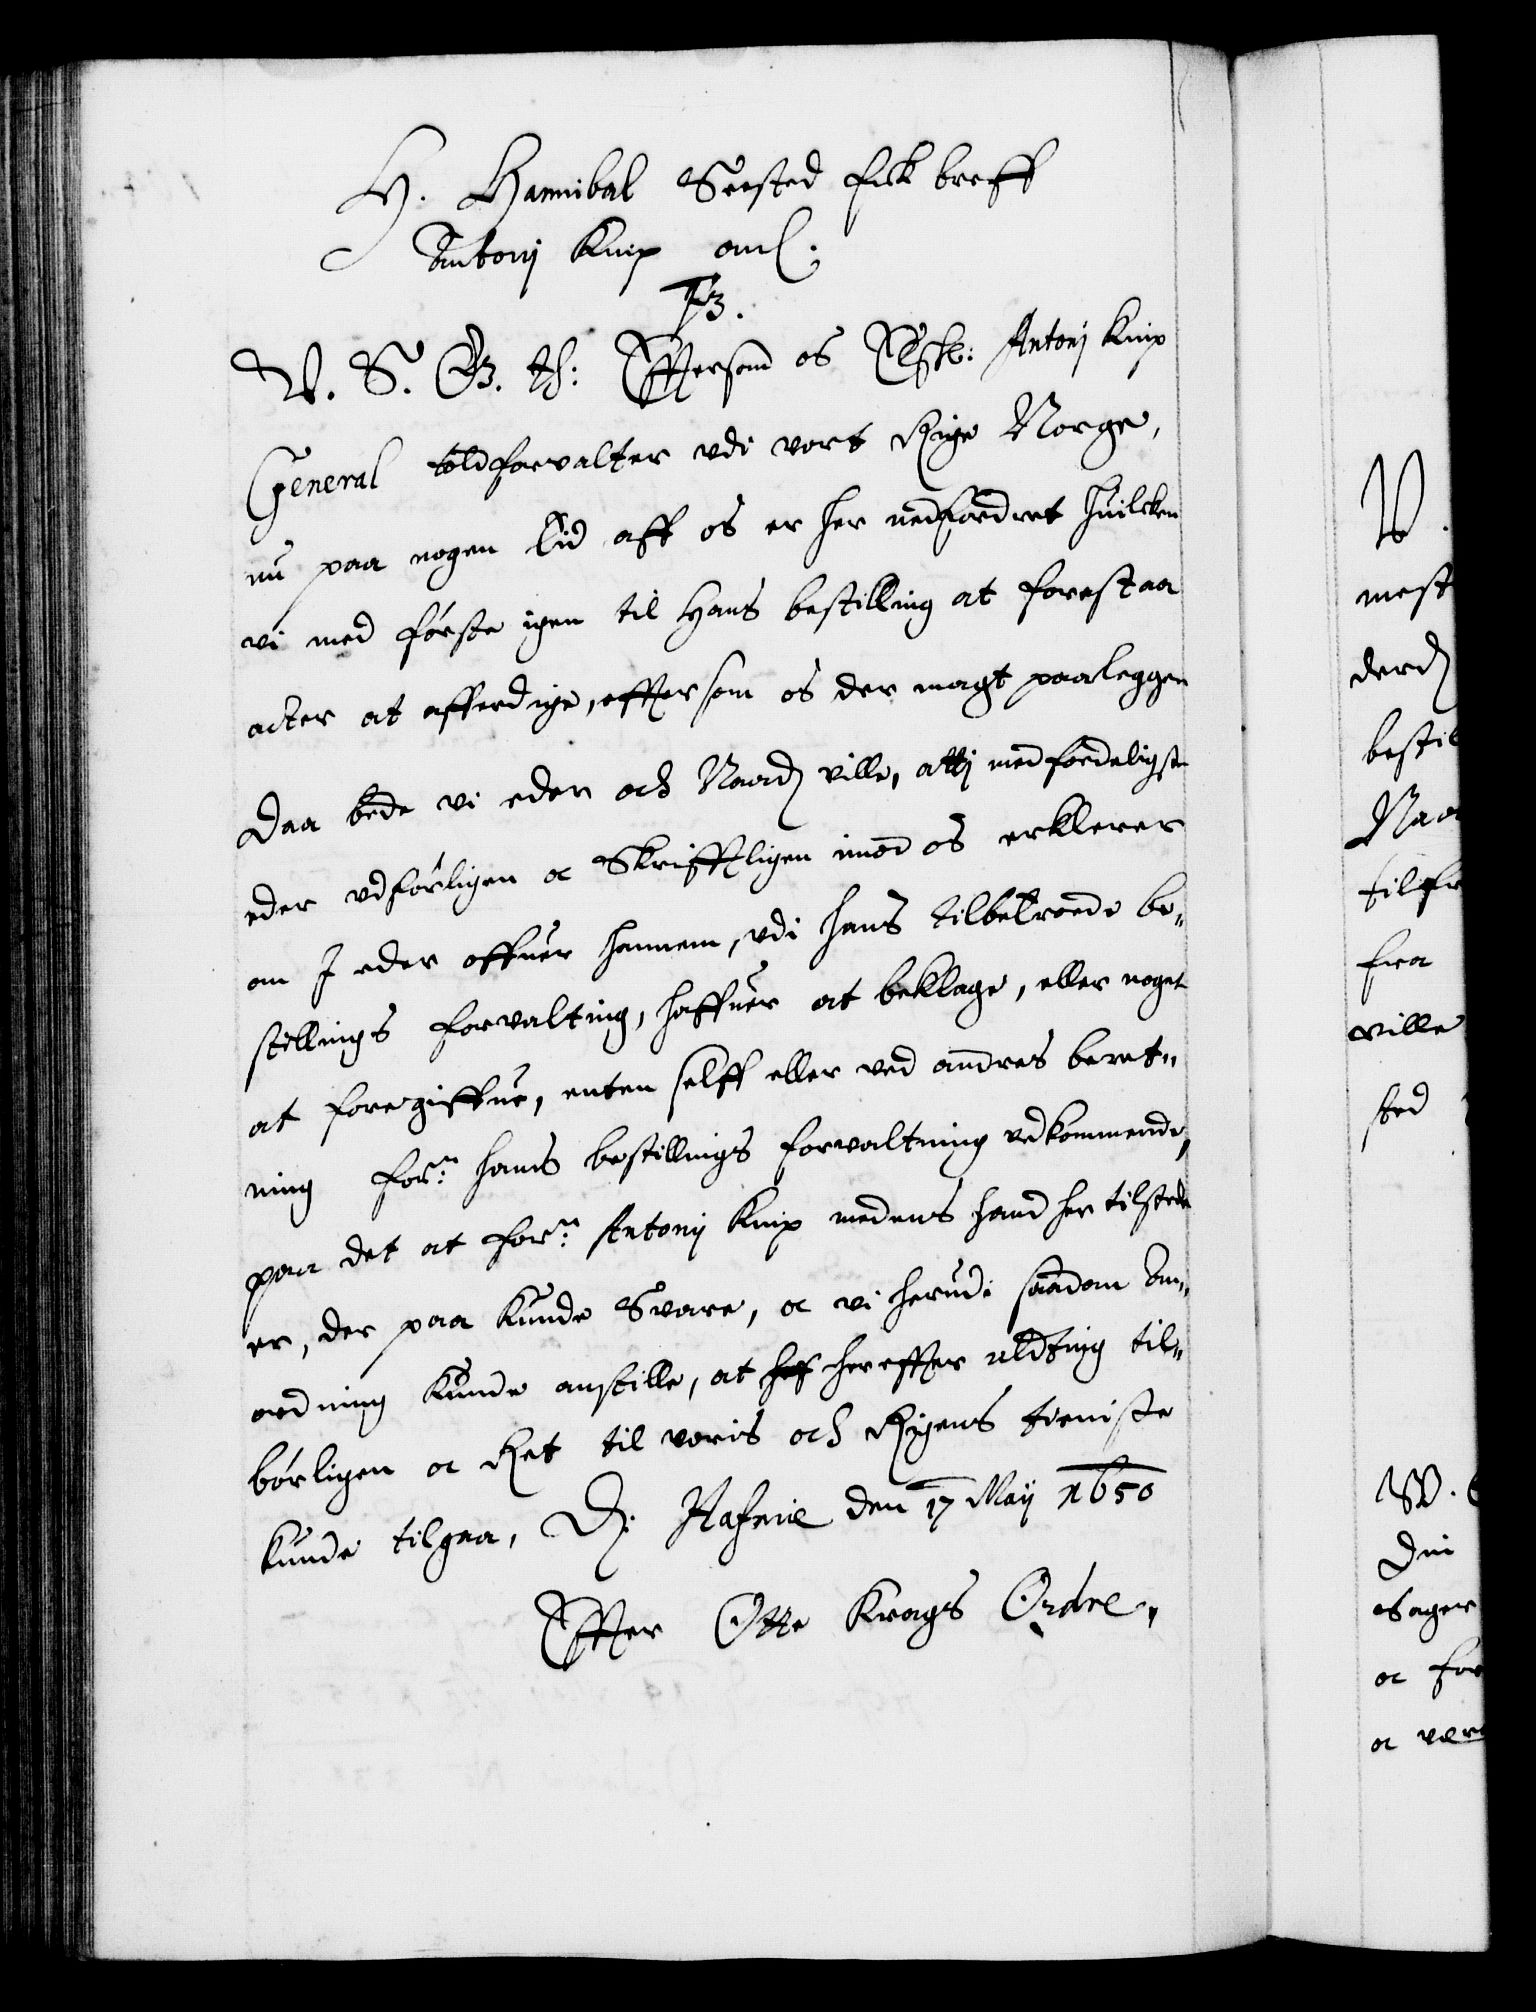 H. Hannibal Seested fick breff
Antonij Knip anl:
F3.
V. S. G. th: Efftersom os Elsk: Antonj Knip
General toldforvalter vdi vort Rige Norge,
nu paa nogen tid aff os er her nedfordret huilcken
vi med første igen til Hans bestilling at forestaa
acter at afferdige, effter som os der magt paaleggen
Daa bede vi eder och Naad: ville, atj med fordeligste
eder vdførligen oc Skrifftligen imod os erklerer
om I eder offuer hannem, vdi hans tilbetroede be„
stillings forvalting, haffuer at beklage, eller noget
at foregiffue, enten selff eller ved andres beret„
ning forn: hans bestillings forvaltning vedkommende,
paa det at forn: Antonij Knip medens hand her tilstede
er, der paa kunde Svare, oc vi herudi saadan An„
ordning kunde anstille, at her effter alting til„
børligen oc Ret til voris och Rigens tieniste
kunde tilgaa, D: Hafniæ den 17 Maij 1650
Effter Otte Krags Ordre,
V.
mest
derd
bestil
Naa
tilfr
fra
ville
sted
W.
Din
Sager
oc for
oc vær